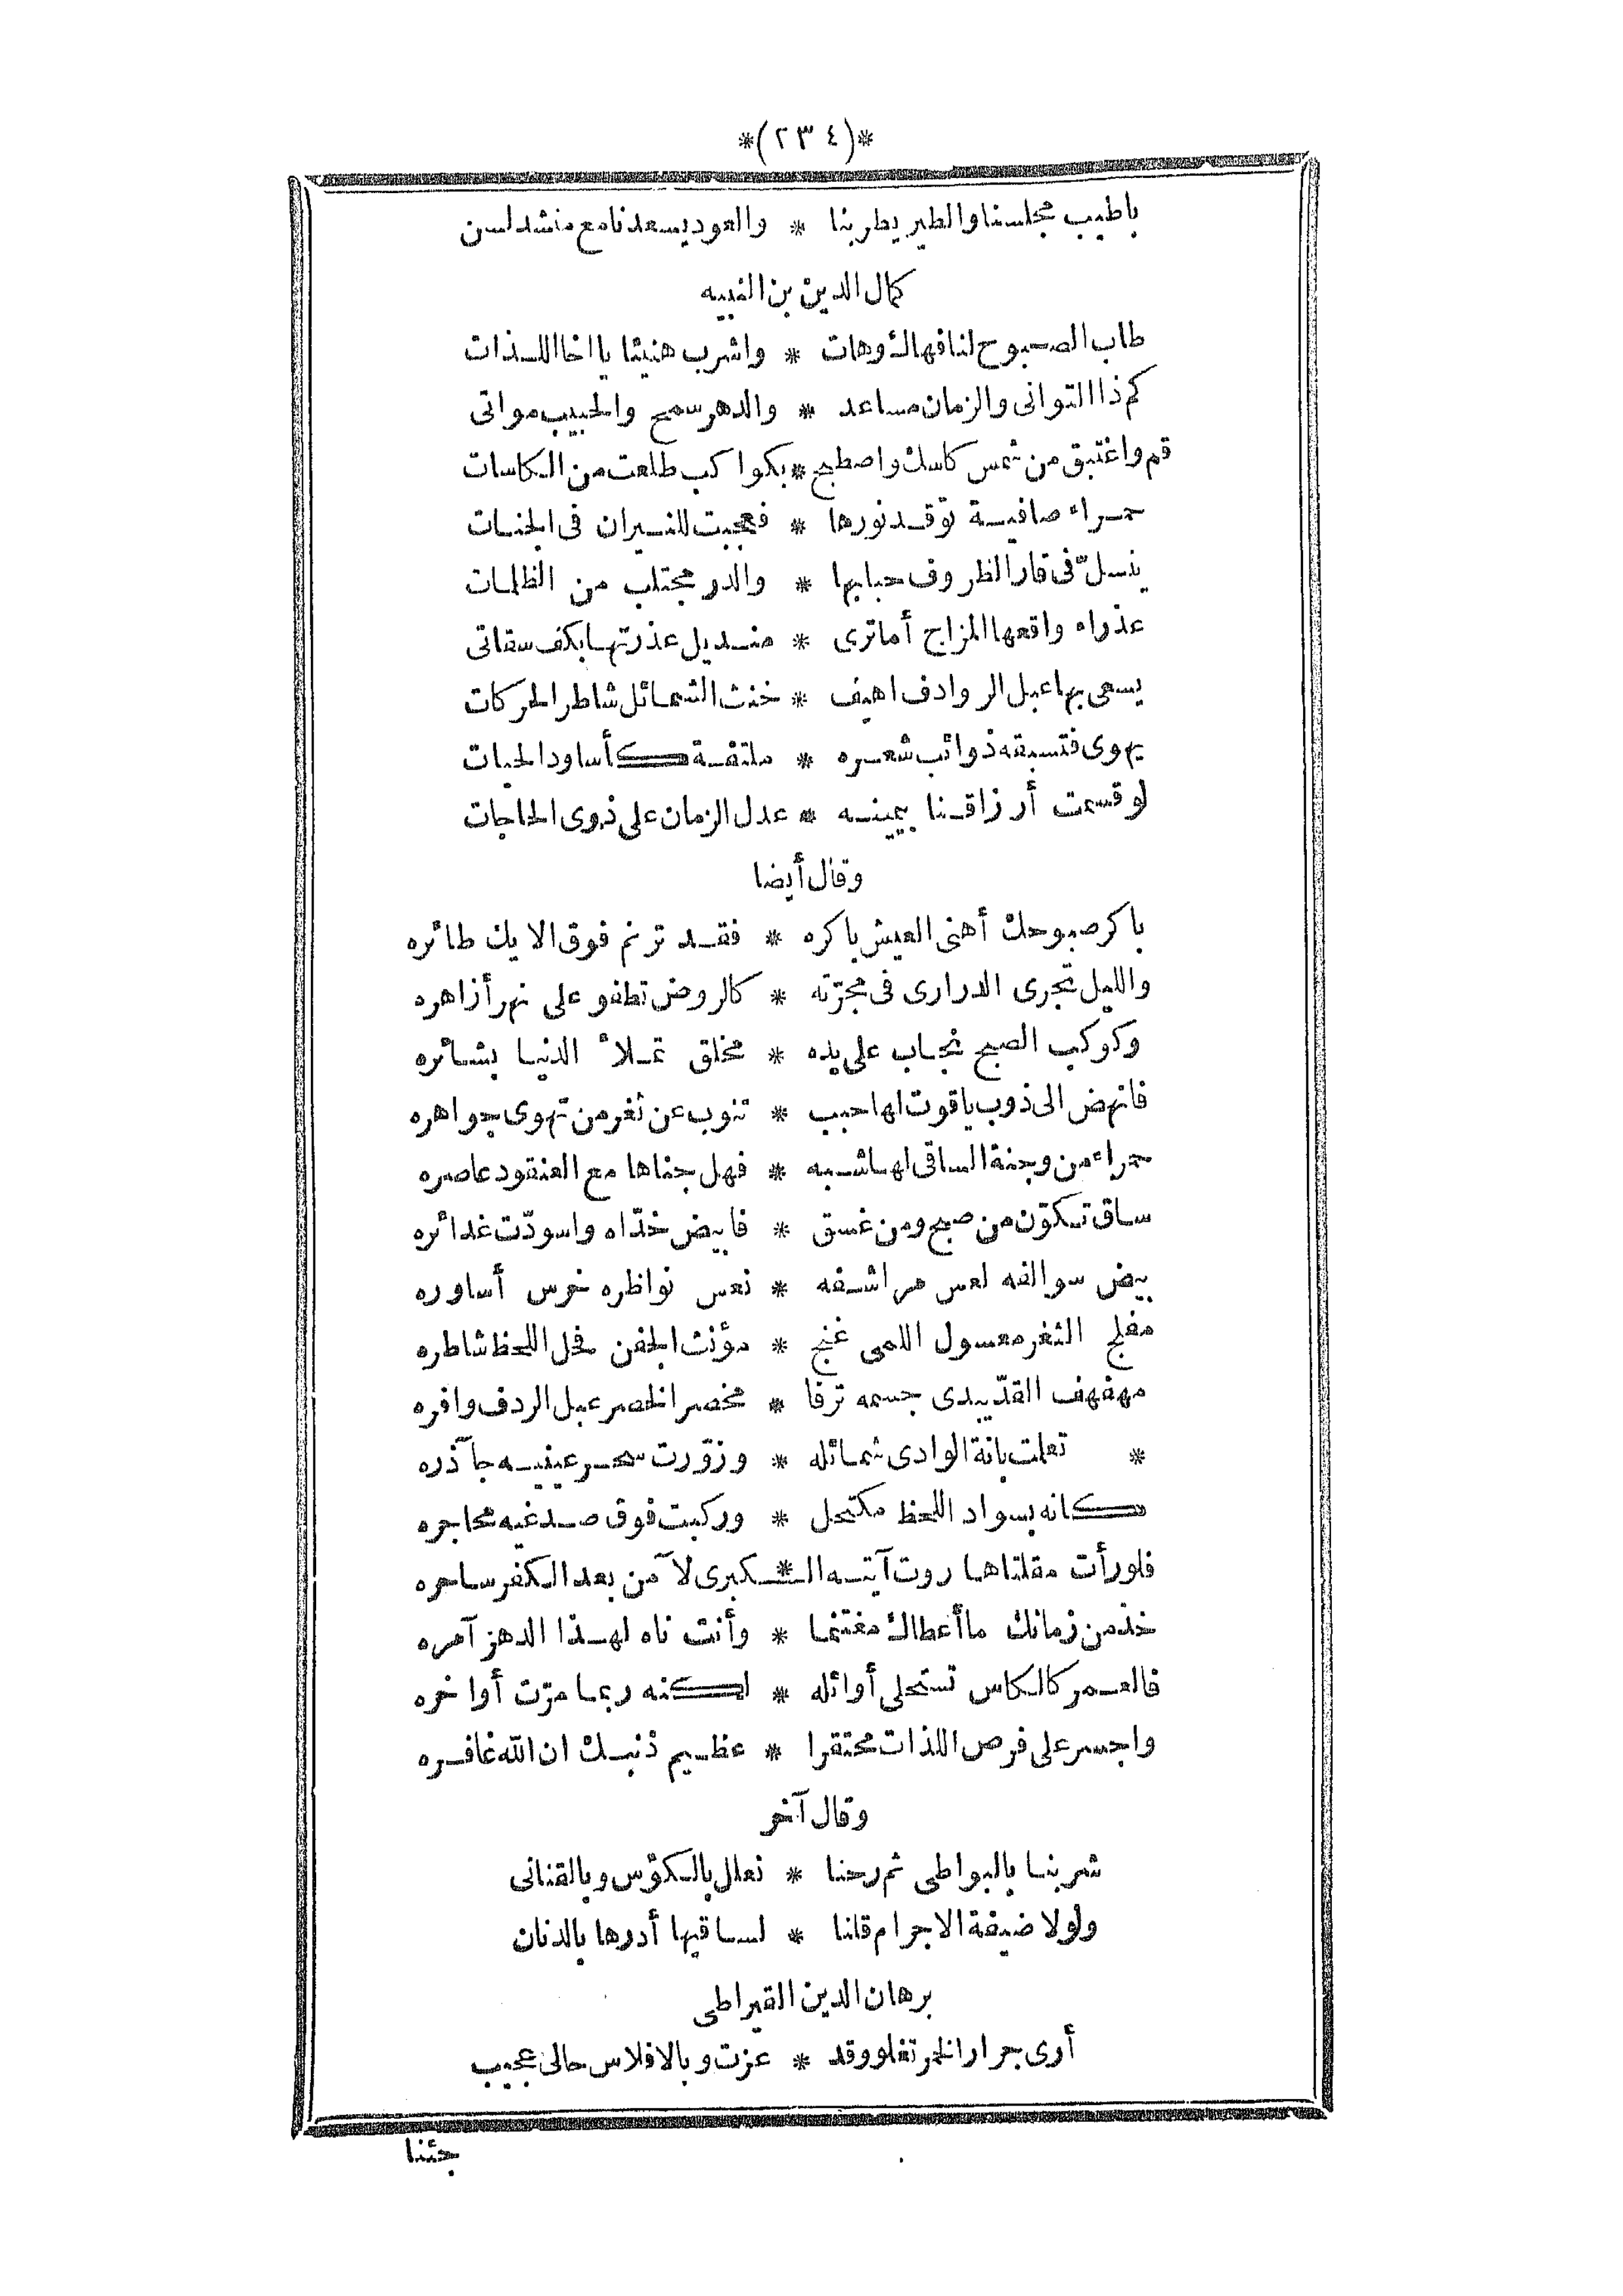 *(٢٣٤)*
ياطيب مجلسنا والطير يطربنا * والعود يسعدنا مع منشد لسن
كمال الدين بن النبيه
طاب الصبوح لنا فهاك وهات * واشرب هنيئا يا اخا اللذات
كم ذا التوانى والزمان مساعد * والدهر سمح والحبيب مواتى
قم واغتبق من شمس كاسك واصطبح * بكواكب طلعت من الكاسات
حمراء صافية توقد نورها * فعجبت للنيران فى الجنات
ينسلّ فى قار الظروف حبابها * والدر مجتلب من الظلمات
عذراء واقعها المزاج أما ترى * منديل عذرتها بكف سقاتى
يسعى بها عبل الروادف اهيف * خنث الشمائل شاطر الحركات
يهوى فتسبقه ذوائب شعره * ملتفة كأساود الحيات
لو قسمت أرزاقنا بيمينه * عدل الزمان على ذوى الحاجات
وقال أيضا
باكر صبوحك أهنى العيش باكره * فقد ترنم فوق الايك طائره
والليل تجرى الدرارى فى مجرّته * كالروض تطفو على نهر أزاهره
وكوكب الصبح نجاب على يده * مخلق تملأ الدنيا بشائره
فانهض الى ذوب ياقوت لها حبب * تنوب عن ثغر من تهوى جواهره
حمراء من وجنة الساقى لها شبه * فهل جناها مع العنقود عاصره
ساق تكوّن من صبح ومن غسق * فابيض خدّاه واسودّت غدائره
بيض سوالفه لعس مراشفه * نعس نواظره خرس أساوره
مفلج الثغر معسول اللمى غنج * مؤنث الجفن فحل اللحظ شاطره
مهفهف القدّ يبدى جسمه ترفا * مخصر الخصر عبل الردف وافره
* تعلمت بانة الوادى شمائله * وزوّرت سحر عينيه جآذره
كانه بسواد اللحظ مكتحل * وركبت فوق صدغيه محاجره
فلو رأت مقلتاها روت آيته الـ * ـكبرى لآمن بعد الكفر ساحره
خذ من زمانك ما أعطاك مغتنما * وأنت ناه لهذا الدهر آمره
فالعمر كالكاس تستحلى أوائله * لكنه ربما مرّت أواخره
واجسر على فرص اللذات محتقرا * عظيم ذنبك ان الله غافره
وقال آخر
شربنا بالبواطى ثم رحنا * نعلل بالكؤس وبالقنانى
ولولا ضيفة الاجرام قلنا * لساقيها أدرها بالدنان
برهان الدين القيراطى
أرى جرار الخمر تغلو وقد * عزت وبالافلاس حالى عجيب
جئنا